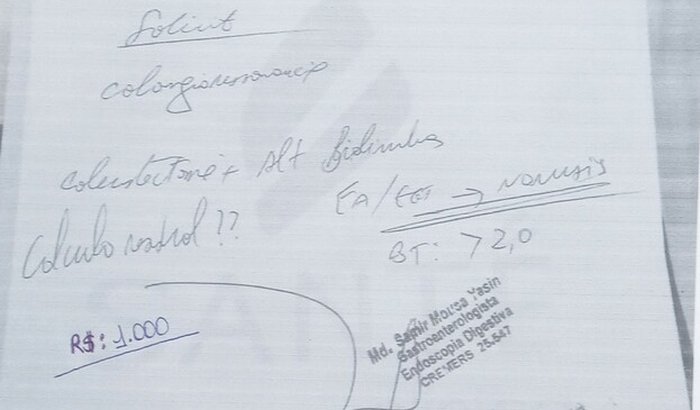 Solicit
colangiressonancia
colecistectomia + Alt Bilirrubina
FA/GGT → NORMAIS
Calculo residual ??
BT: > 2,0
R$: 1.000
Md. Samir Mousa Yasin
Gastroenterologista
Endoscopia Digestiva
CREMERS 25.547